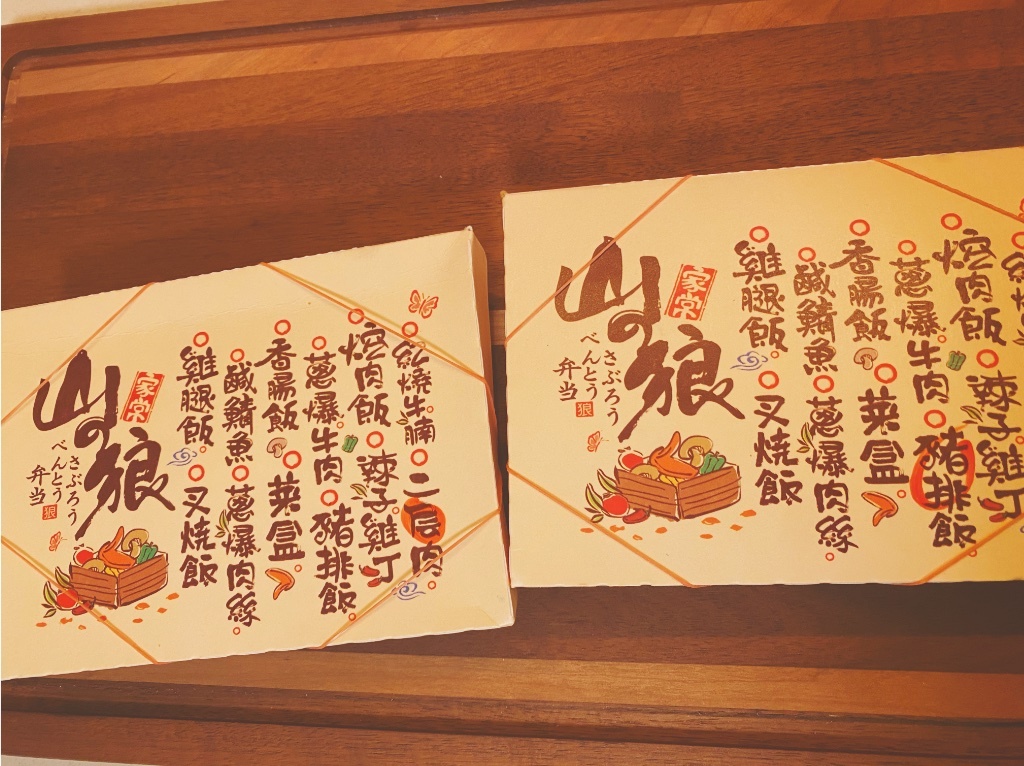 紅燒牛腩
焢肉飯 辣子雞丁
蔥爆牛肉 豬排飯
香腸飯 菜盒
鹹鯖魚 蔥爆肉絲
雞腿飯 叉燒飯
家常
山の狼
さぶろう
べんとう
弁当
狼
焢肉飯 辣子雞丁
蔥爆牛肉 豬排飯
香腸飯 菜盒
鹹鯖魚 蔥爆肉絲
雞腿飯 叉燒飯
家常
山の狼
さぶろう
べんとう
弁当
狼